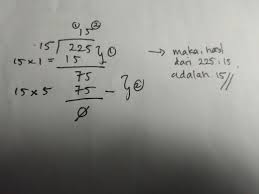 ① ②
15
15 √225 } ①
15 x 1 = 15
75
15 x 5 75 - } ②
0
→ maka, hasil
dari 225 : 15
adalah 15 //